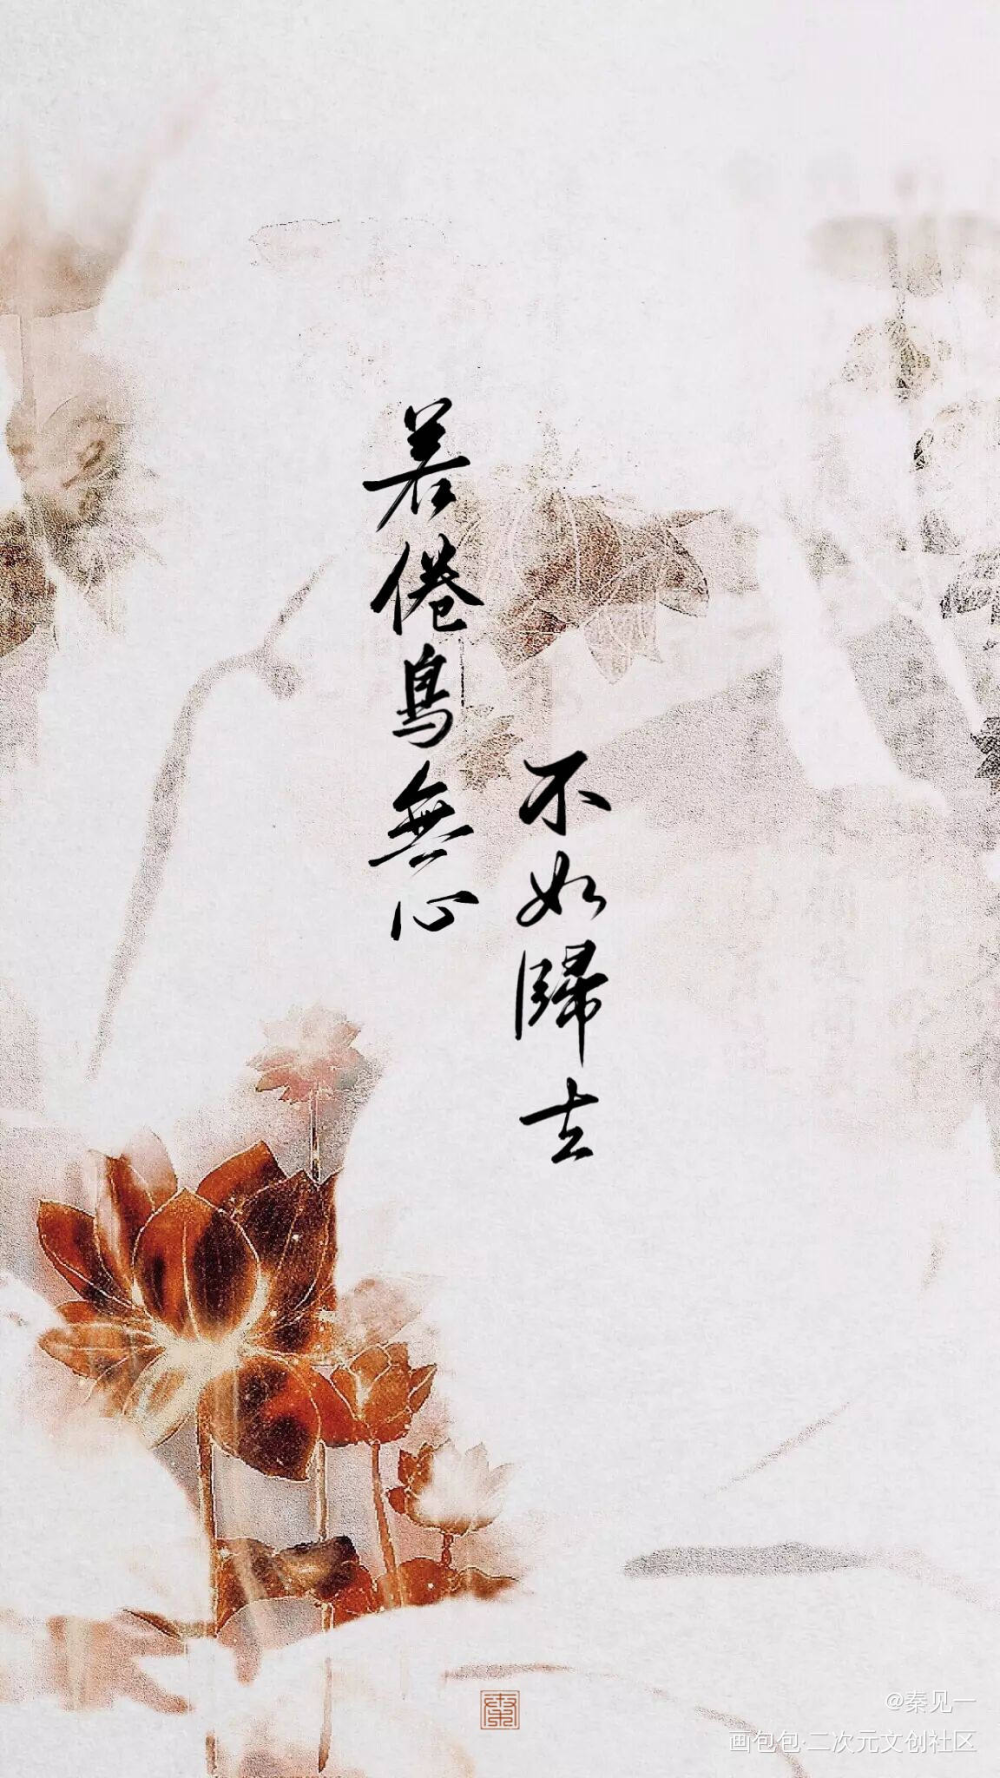 若倦鳥無心
不如歸去
@秦见一
画包包·二次元文创社区